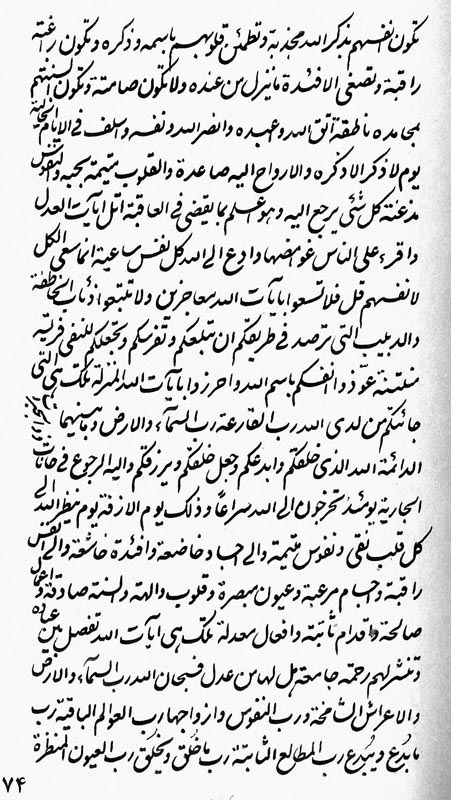 تكون انفسهم بذكر الله مجذبة و تطمئن قلوبهم باسمه و ذكره و تكون راغبة
راقبة و تصغى الافئدة ما ينزل من عنده و لا تكون صامتة و تكون السنتهم
بمحامده ناطقة اتق الله و اعبده و انصر الله و نفسه و اسلف فى الايام الخالية
يوم لا ذكر الا ذكره و الارواح اليه صاعدة و القلوب متيمة بحبه و النفوس
مذعنة كل شئ يرجع اليه و هو اعلم بما يقضى فى العاقبة اتل ايات العدل
و اقرء على الناس غوامضها و ادع الى الله كل نفس ساعية انما سعى الكل
لانفسهم قل فلا تسعوا بايات الله معاجزين و لا تتبعوا ذئاب الخاطفة
و الدبيب التى ترصد فى طريقكم ان تبلعكم و تفرسكم و تجعلكم للنفى فريسة
عوذوا انفسكم باسم الله و احرزوا بايات الله المنزلة تلك هى التى
جائتكم من لدى الله رب القارعة رب السمآء و الارض و ما بينهما
الدائمة الله الذى خلقكم و ابدعكم و جعل خلفكم و يرزقكم و اليه الرجوع فى
الجارية يومئذ تخرجون الى الله سراعا و ذلك يوم الازفة يوم ينظر الله الى
كل قلب نقى و نفوس متيمة و الى اجساد خاضعة و افئدة خاشعة و الى انفس
راقبة و اجسام مرعبة و عيون مبصرة و قلوب والهة و السنة صادقة و اعمال
صالحة و اقدام ثابتة و افعال معدلة تلك هى ايات الله تفصل بين عباده
و تنشر لهم رحمة جامعة هل لها من عدل فسبحان الله رب السمآء و الارض
و الاعراش الشامخة و رب النفوس و ازواجها رب العوالم الباقية رب
ما بدع و يبدع رب المطالع الثابتة رب ما خلق و يخلق رب العيون المنتظرة
٧٤